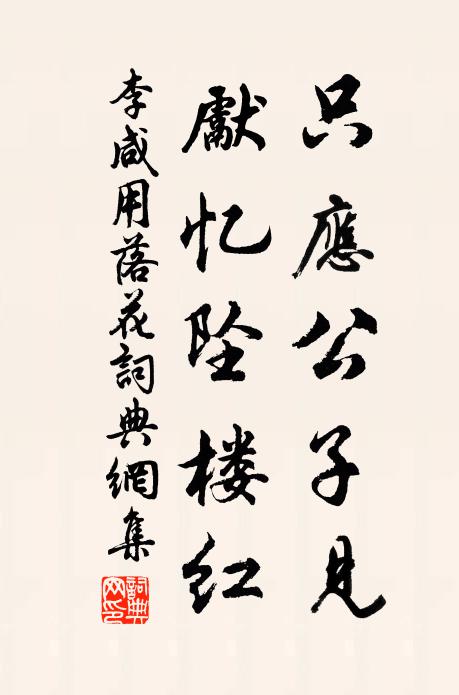 只應公子見
獻忆坠楼红
李咸用落花詞典網集
詞典网印